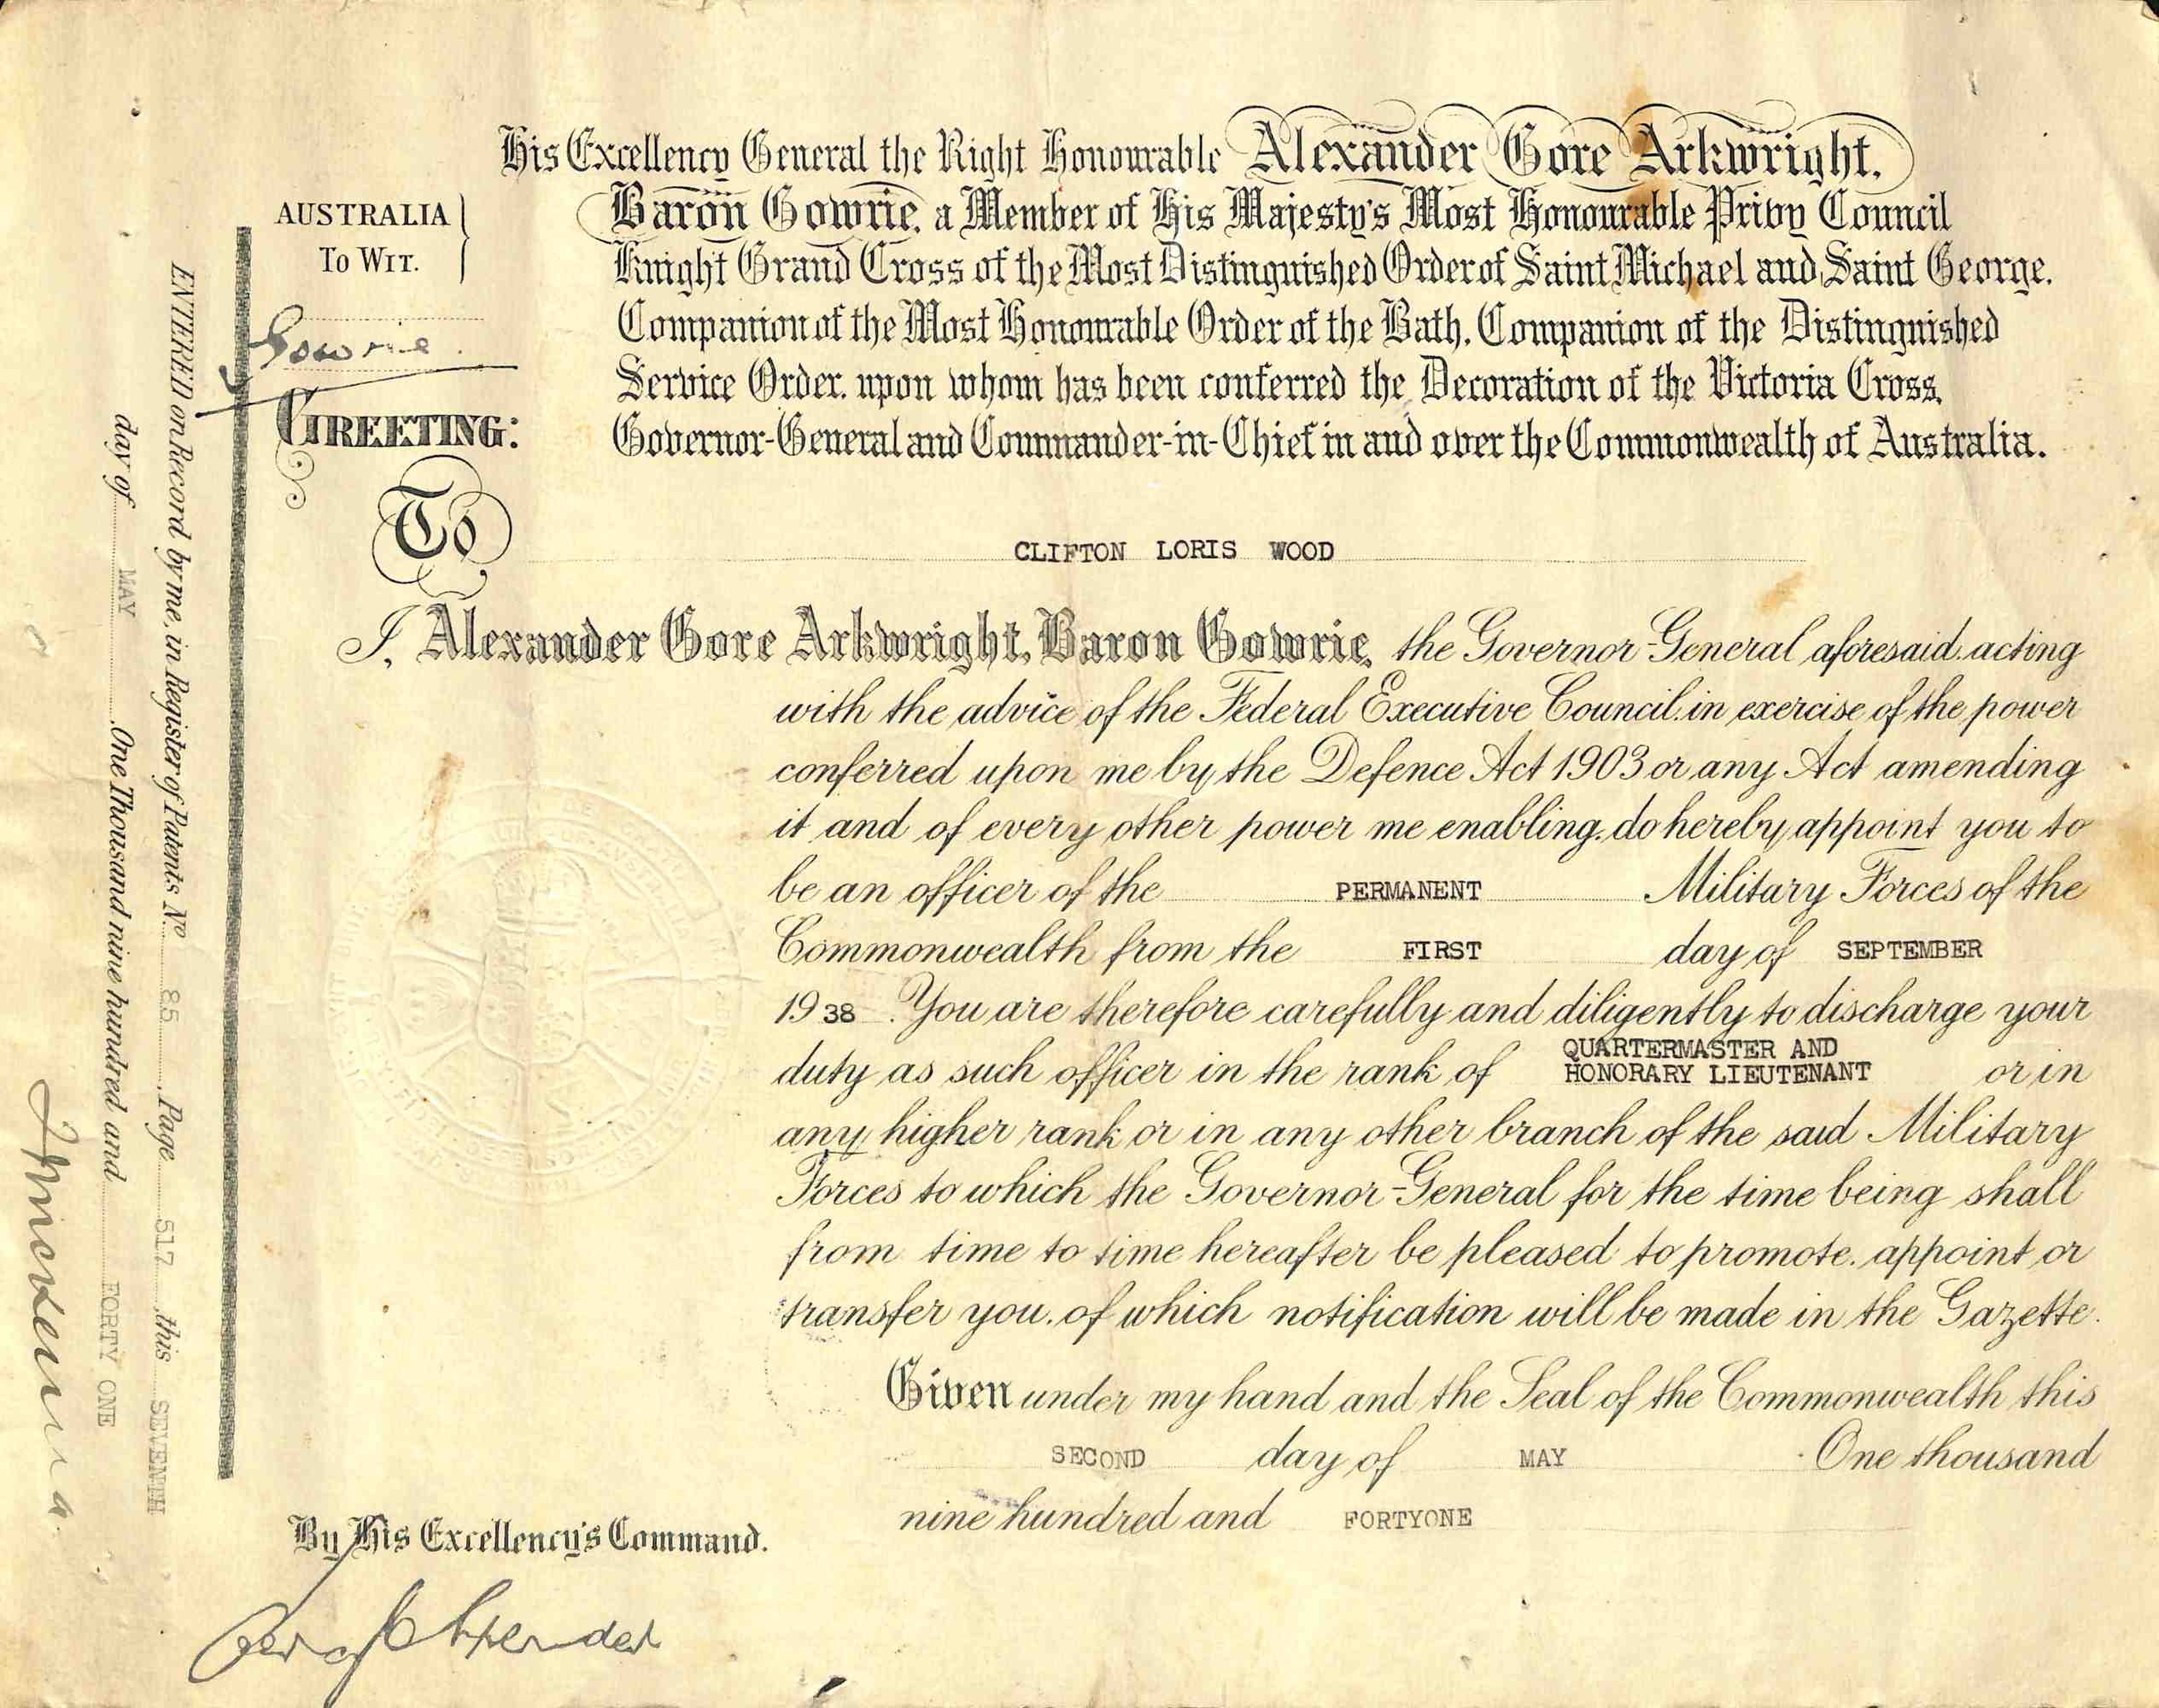 His Excellency General the Right Honourable Alexander Gore Arkwright,
Baron Gowrie, a Member of His Majesty's Most Honourable Privy Council
Knight Grand Cross of the Most Distinguished Order of Saint Michael and Saint George,
Companion of the Most Honourable Order of the Bath, Companion of the Distinguished
Service Order, upon whom has been conferred the Decoration of the Victoria Cross,
Governor-General and Commander-in-Chief in and over the Commonwealth of Australia.
AUSTRALIA
TO WIT.
Gowrie.
GREETING:
To
CLIFTON LORIS WOOD
I, Alexander Gore Arkwright, Baron Gowrie, the Governor-General aforesaid, acting
with the advice of the Federal Executive Council, in exercise of the power
conferred upon me by the Defence Act 1903 or any Act amending
it and of every other power me enabling, do hereby appoint you to
be an officer of the PERMANENT Military Forces of the
Commonwealth from the FIRST day of SEPTEMBER
1938. You are therefore carefully and diligently to discharge your
duty as such officer in the rank of QUARTERMASTER AND HONORARY LIEUTENANT or in
any higher rank or in any other branch of the said Military
Forces to which the Governor-General for the time being shall
from time to time hereafter be pleased to promote, appoint or
transfer you, of which notification will be made in the Gazette.
Given under my hand and the Seal of the Commonwealth this
SECOND day of MAY One thousand
nine hundred and FORTYONE
By His Excellency's Command.
Spender
ENTERED on Record by me, in Register of Patents No. 85 Page 517 this SEVENTH
day of MAY One Thousand nine hundred and FORTY ONE